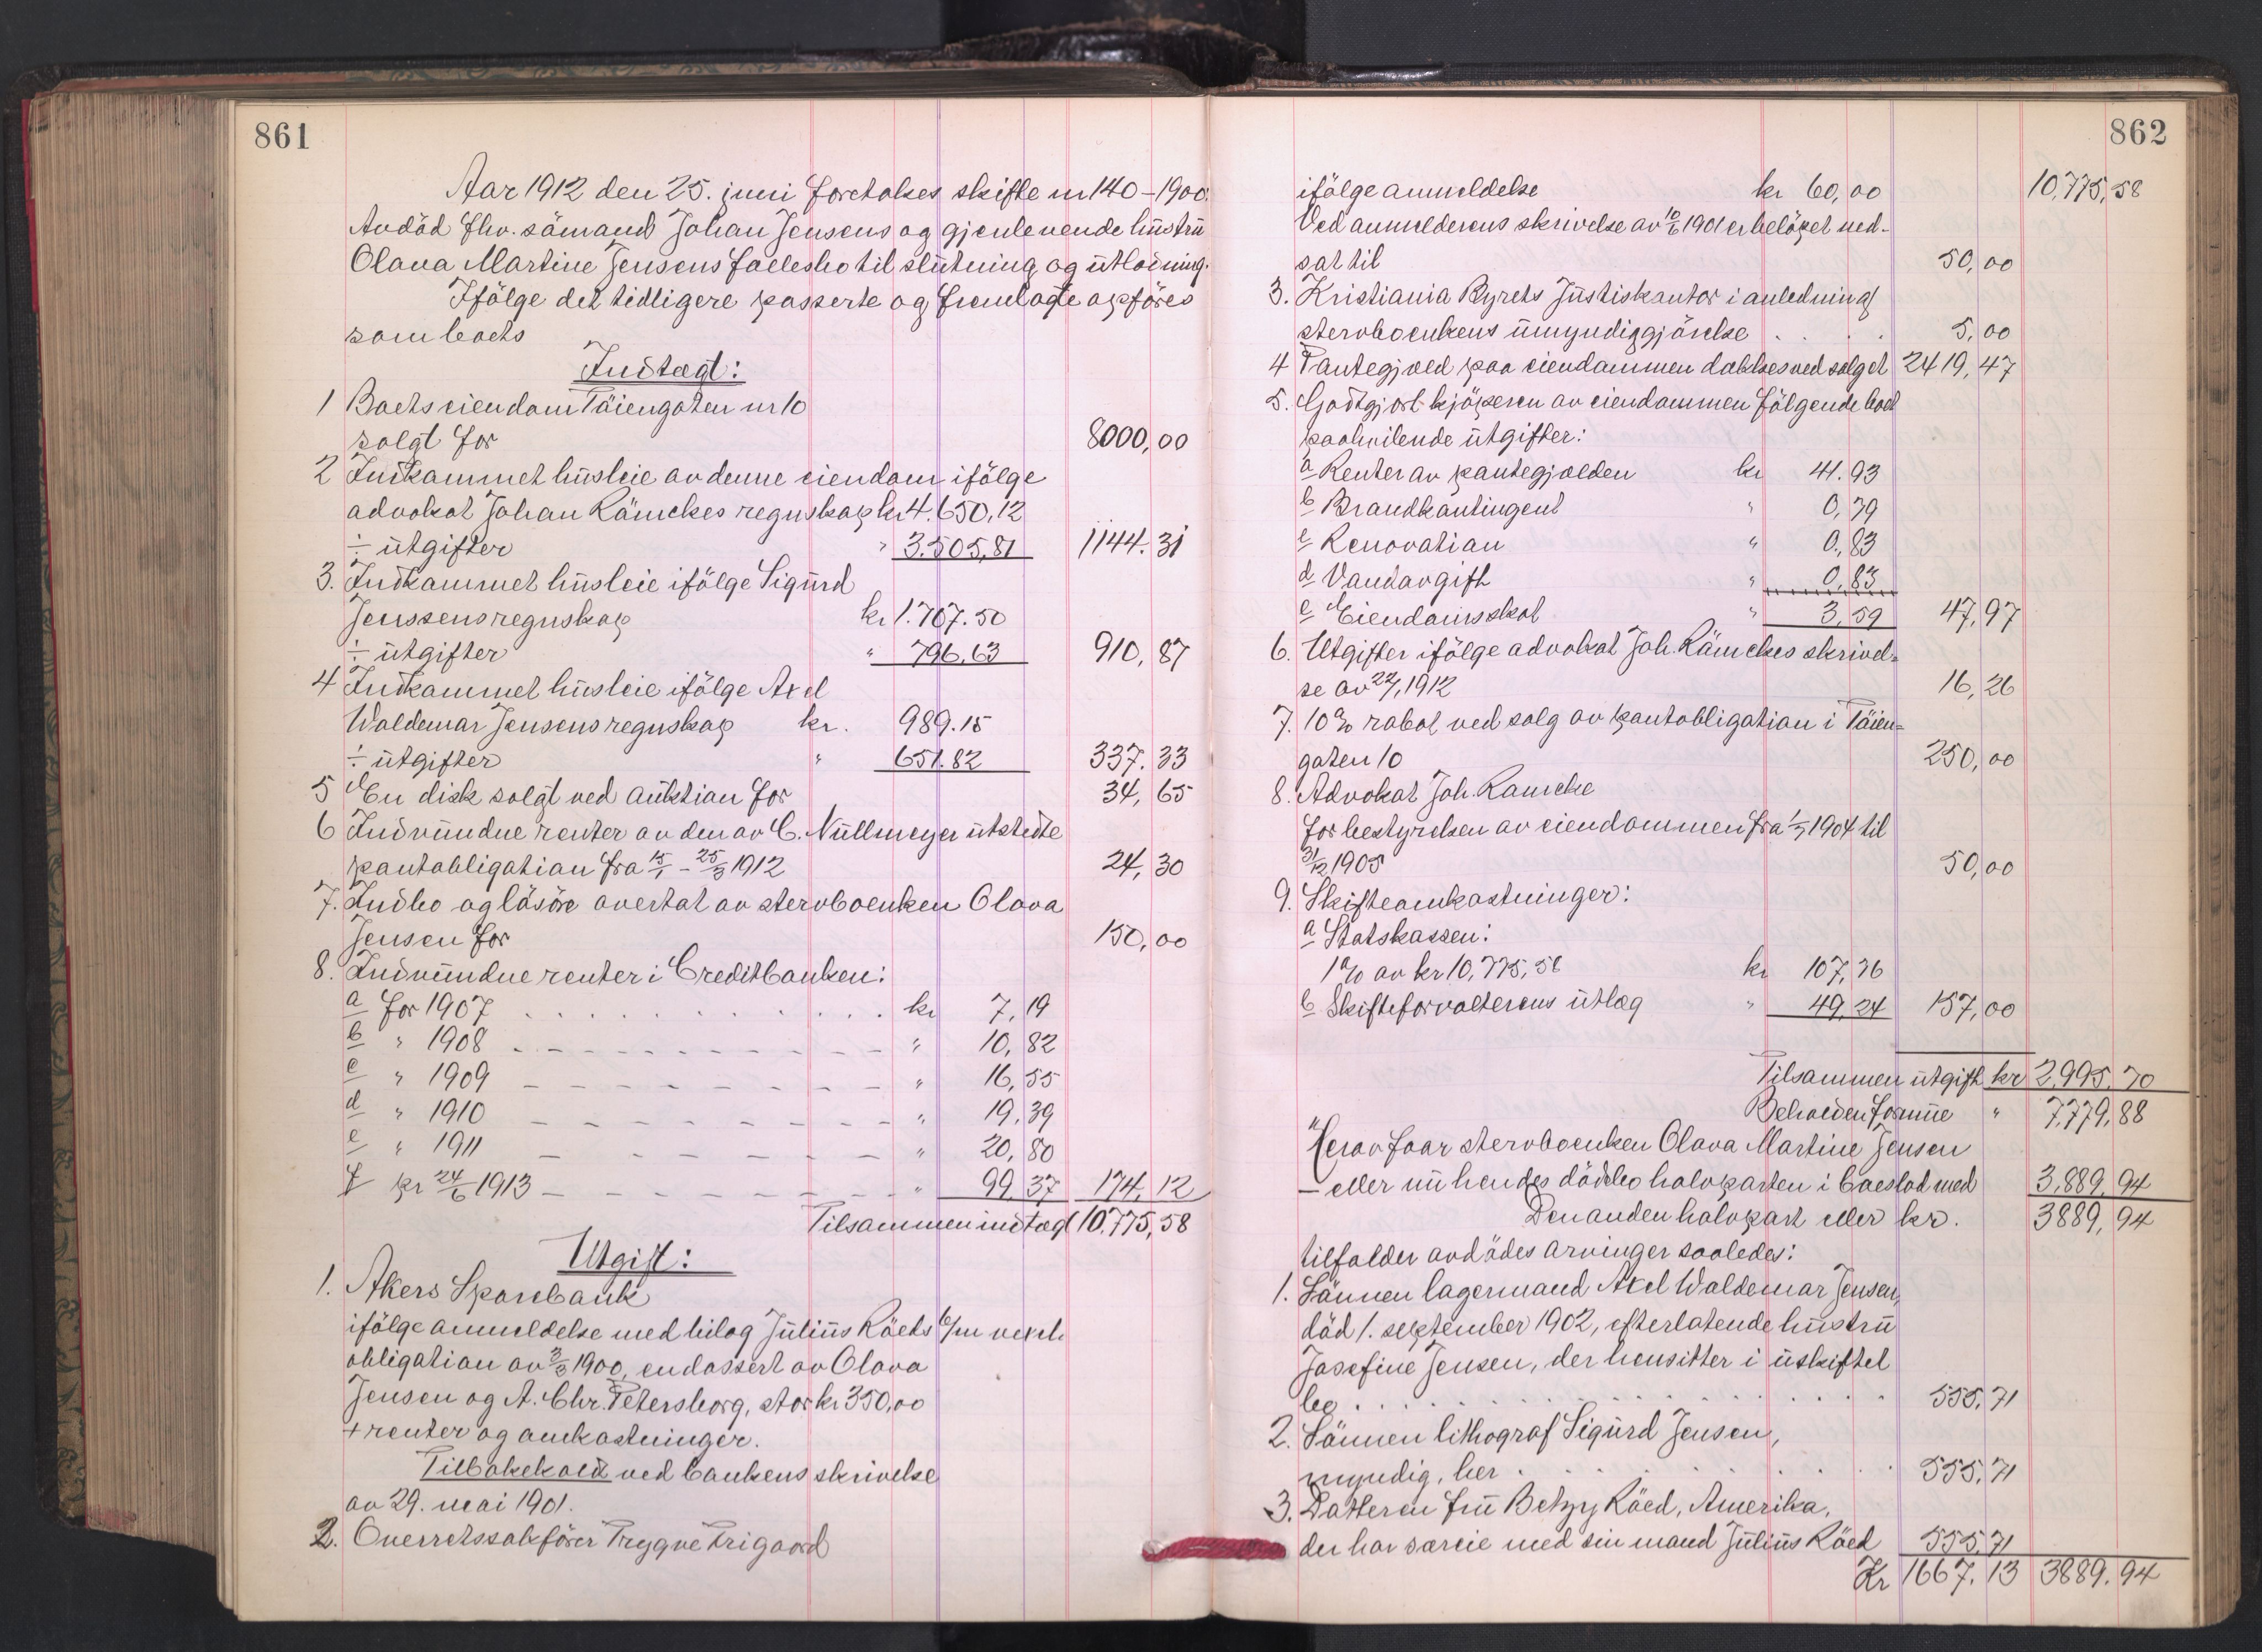 861
Aar 1912 den 25. juni foretokes skifte nr 140-1900.
Avdöd fhv. sömand Johan Jensens og gjenlevende hustru
Olava Martine Jensens fællesbo til slutning og utlodning.
Ifölge det tidligere passerte og fremlagte opföres
som boets
Indtægt:
1 Boets eiendom Töiengaten nr 10
solgt for 8000,00
2 Indkommet husleie av denne eiendom ifölge
advokat Johan Rämckes regnskap kr 4.650,12
÷ utgifter " 3.505,81 1144.31
3. Indkommet husleie ifölge Sigurd
Jenssens regnskap kr 1.707.50
÷ utgifter " 796,63 910,87
4 Indkommet husleie ifölge Axel
Waldemar Jensens regnskap kr. 989.15
÷ utgifter " 651.82 337.33
5 En disk solgt ved auktion for 34,65
6 Indvundne renter av den av C. Nüllmeyer utstedte
pantobligation fra 15/1 - 25/3 1912 24,30
7. Indbo og lösöre overtat av stervboenken Olava
Jensen for 150,00
8. Indvundne renter i Creditbanken:
a for 1907 kr 7,19
b " 1908 " 10,82
c " 1909 " 16,55
d " 1910 " 19,39
e " 1911 " 20,80
f pr 24/6 1913 " 99,37 174,12
Tilsammen indtægt 10.775,58
Utgift:
1. Akers Sparebank
ifölge anmeldelse med bilag Julius Röeds 6/m vexel-
obligation av 3/3 1900, endossert av Olava
Jensen og A. Chr. Petersborg, stor kr 350,00
+ renter og omkostninger.
Tilbakekaldt ved bankens skrivelse
av 29. mai 1901.
2. Overretssakförer Trygve Frigaard
862
ifölge anmeldelse kr 60,00 10,775,58
Ved anmelderens skrivelse av 10/6 1901 er belöpet ned-
sat til 50,00
3. Kristiania Byrets Justiskontor i anledning
stervboenkens umyndiggjörelse 5,00
4 Pantegjæld paa eiendommen dækkes ved salget 2419,47
5. Godtgjort kjöperen av eiendommen fölgende boet
paahvilende utgifter:
a Renter av pantegjælden kr 41.93
b Brandkontingent " 0,79
c Renovation " 0,83
d Vandavgift " 0,83
e Eiendomsskat " 3,59 47,97
6. Utgifter ifölge advokat Joh. Rämckes skrivel-
se av 22/1 1912 16,26
7. 10% rabat ved salg av pantobligation i Töien-
gaten 10 250,00
8. Advokat Joh. Ramcke
for bestyrelsen av eiendommen fra 1/7 1904 til
31/12 1905 50,00
9. Skifteomkostninger:
a Statskassen:
1% av kr 10,775,58 kr 107,76
b Skifteforvalterens utlæg " 49,24 157,00
Tilsammen utgift kr 2,995,70
Beholden formue " 7,779,88
Herav faar stervboenken Olava Martine Jensen
– eller nu hendes dödsbo halvparten i boeslod med 3,889,94
Den anden halvpart eller kr. 3889,94
tilfalder avdödes arvinger saaledes:
1. Sönnen lagermand Axel Waldemar Jensen,
död 1. september 1902, efterlatende hustru
Josefine Jensen, der hensitter i uskiftet
bo 555,71
2. Sönnen lithograf Sigurd Jensen,
myndig, her 555,71
3. Datteren fru Betzy Röed, Amerika,
der har særeie med sin mand Julius Röed 555,71
Kr 1667.13 3889.94